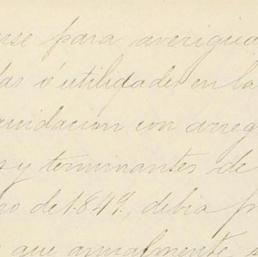 rse para averigua
das ó utilidades en la
quidacion con arreg
s y terminantes de
no de 1849, debia p
que anualmente s